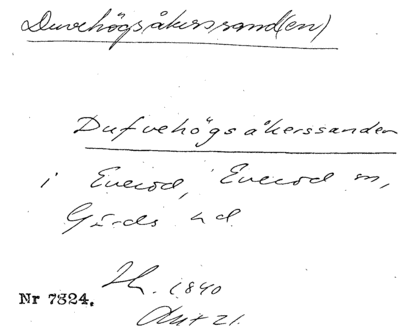 Duvehögsåkerssand(en)
Dufvehögsåkerssanden
i Everöd, Everöd sn,
Gärds hd
Sk. 1840
Akt 21.
Nr 7324.